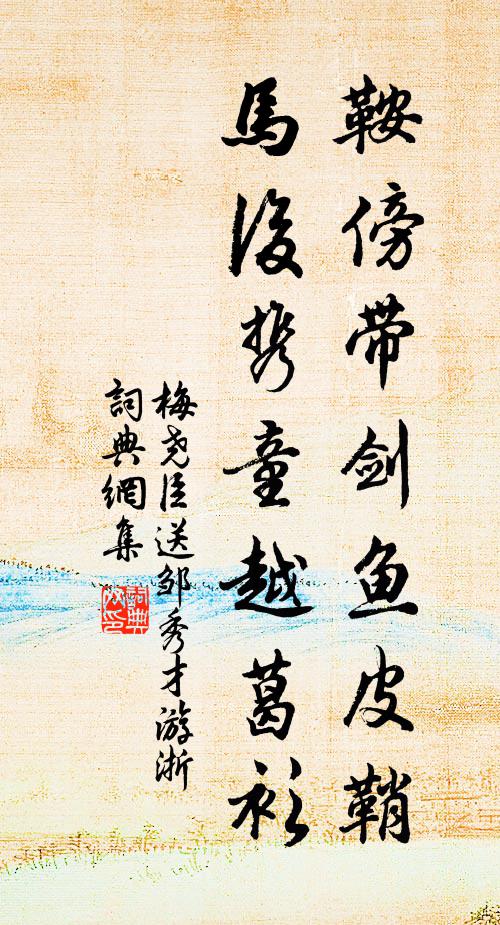 鞍傍带剑鱼皮鞘
馬後携童越葛衫
梅尧臣送邹秀才游浙
詞典網集